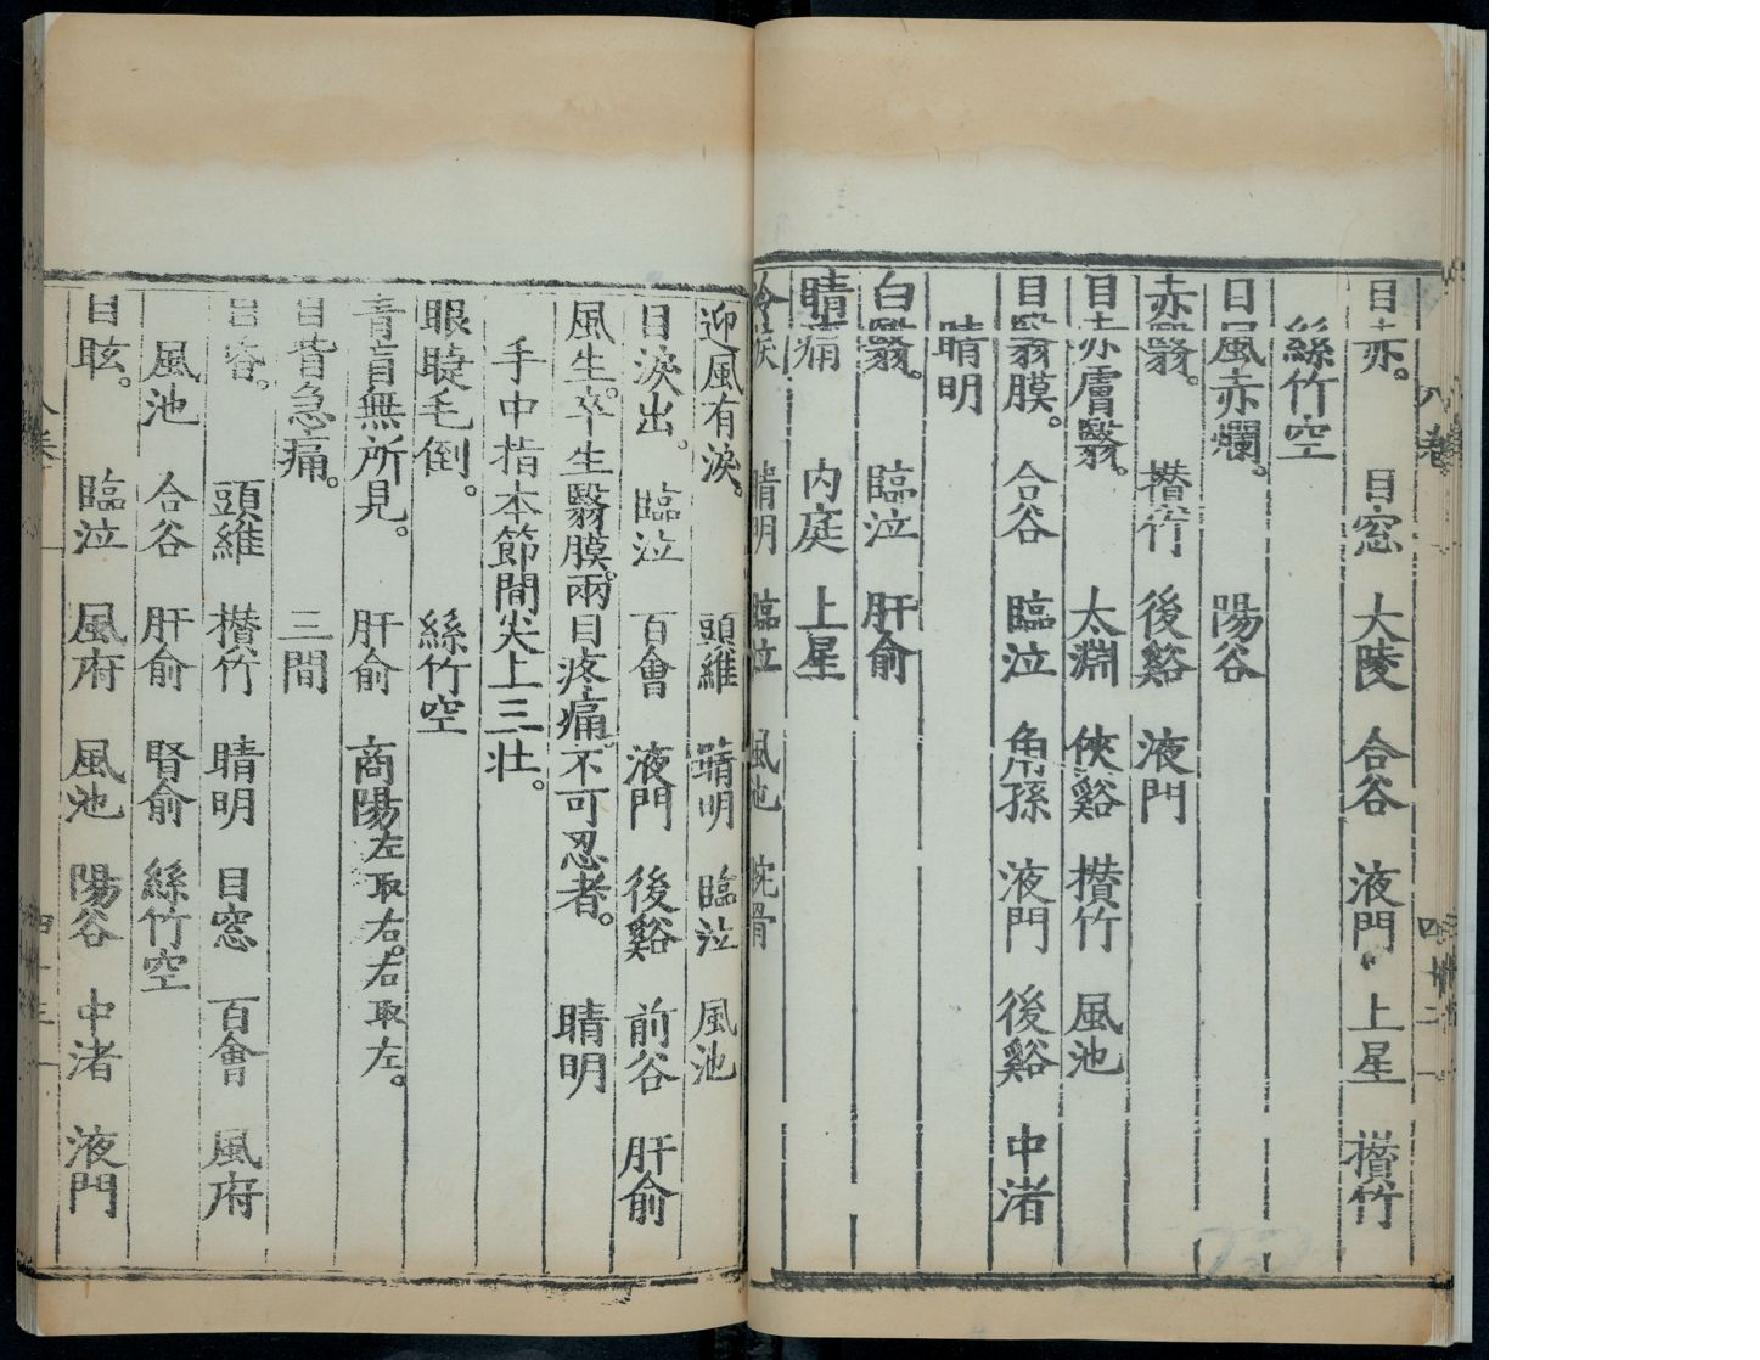 目赤。 目窓 大陵 合谷 液門 上星 攅竹
絲竹空
目風赤爛。 陽谷
赤翳。 攅竹 後谿 液門
目赤膚翳。 太淵 俠谿 攅竹 風池
目翳膜。 合谷 臨泣 角孫 液門 後谿 中渚
睛明
白翳。 臨泣 肝俞
睛痛 内庭 上星
冷淚 睛明 臨泣 風池 腕骨
迎風有淚。 頭維 睛明 臨泣 風池
目淚出。 臨泣 百會 液門 後谿 前谷 肝俞
風生。卒生翳膜。兩目疼痛。不可忍者。 睛明
手中指本節間尖上三壯。
眼睫毛倒。 絲竹空
青盲無所見。 肝俞 商陽左取右。右取左。
目眥急痛。 三間
目昏。 頭維 攅竹 睛明 目窓 百會 風府
風池 合谷 肝俞 腎俞 絲竹空
目眩。 臨泣 風府 風池 陽谷 中渚 液門